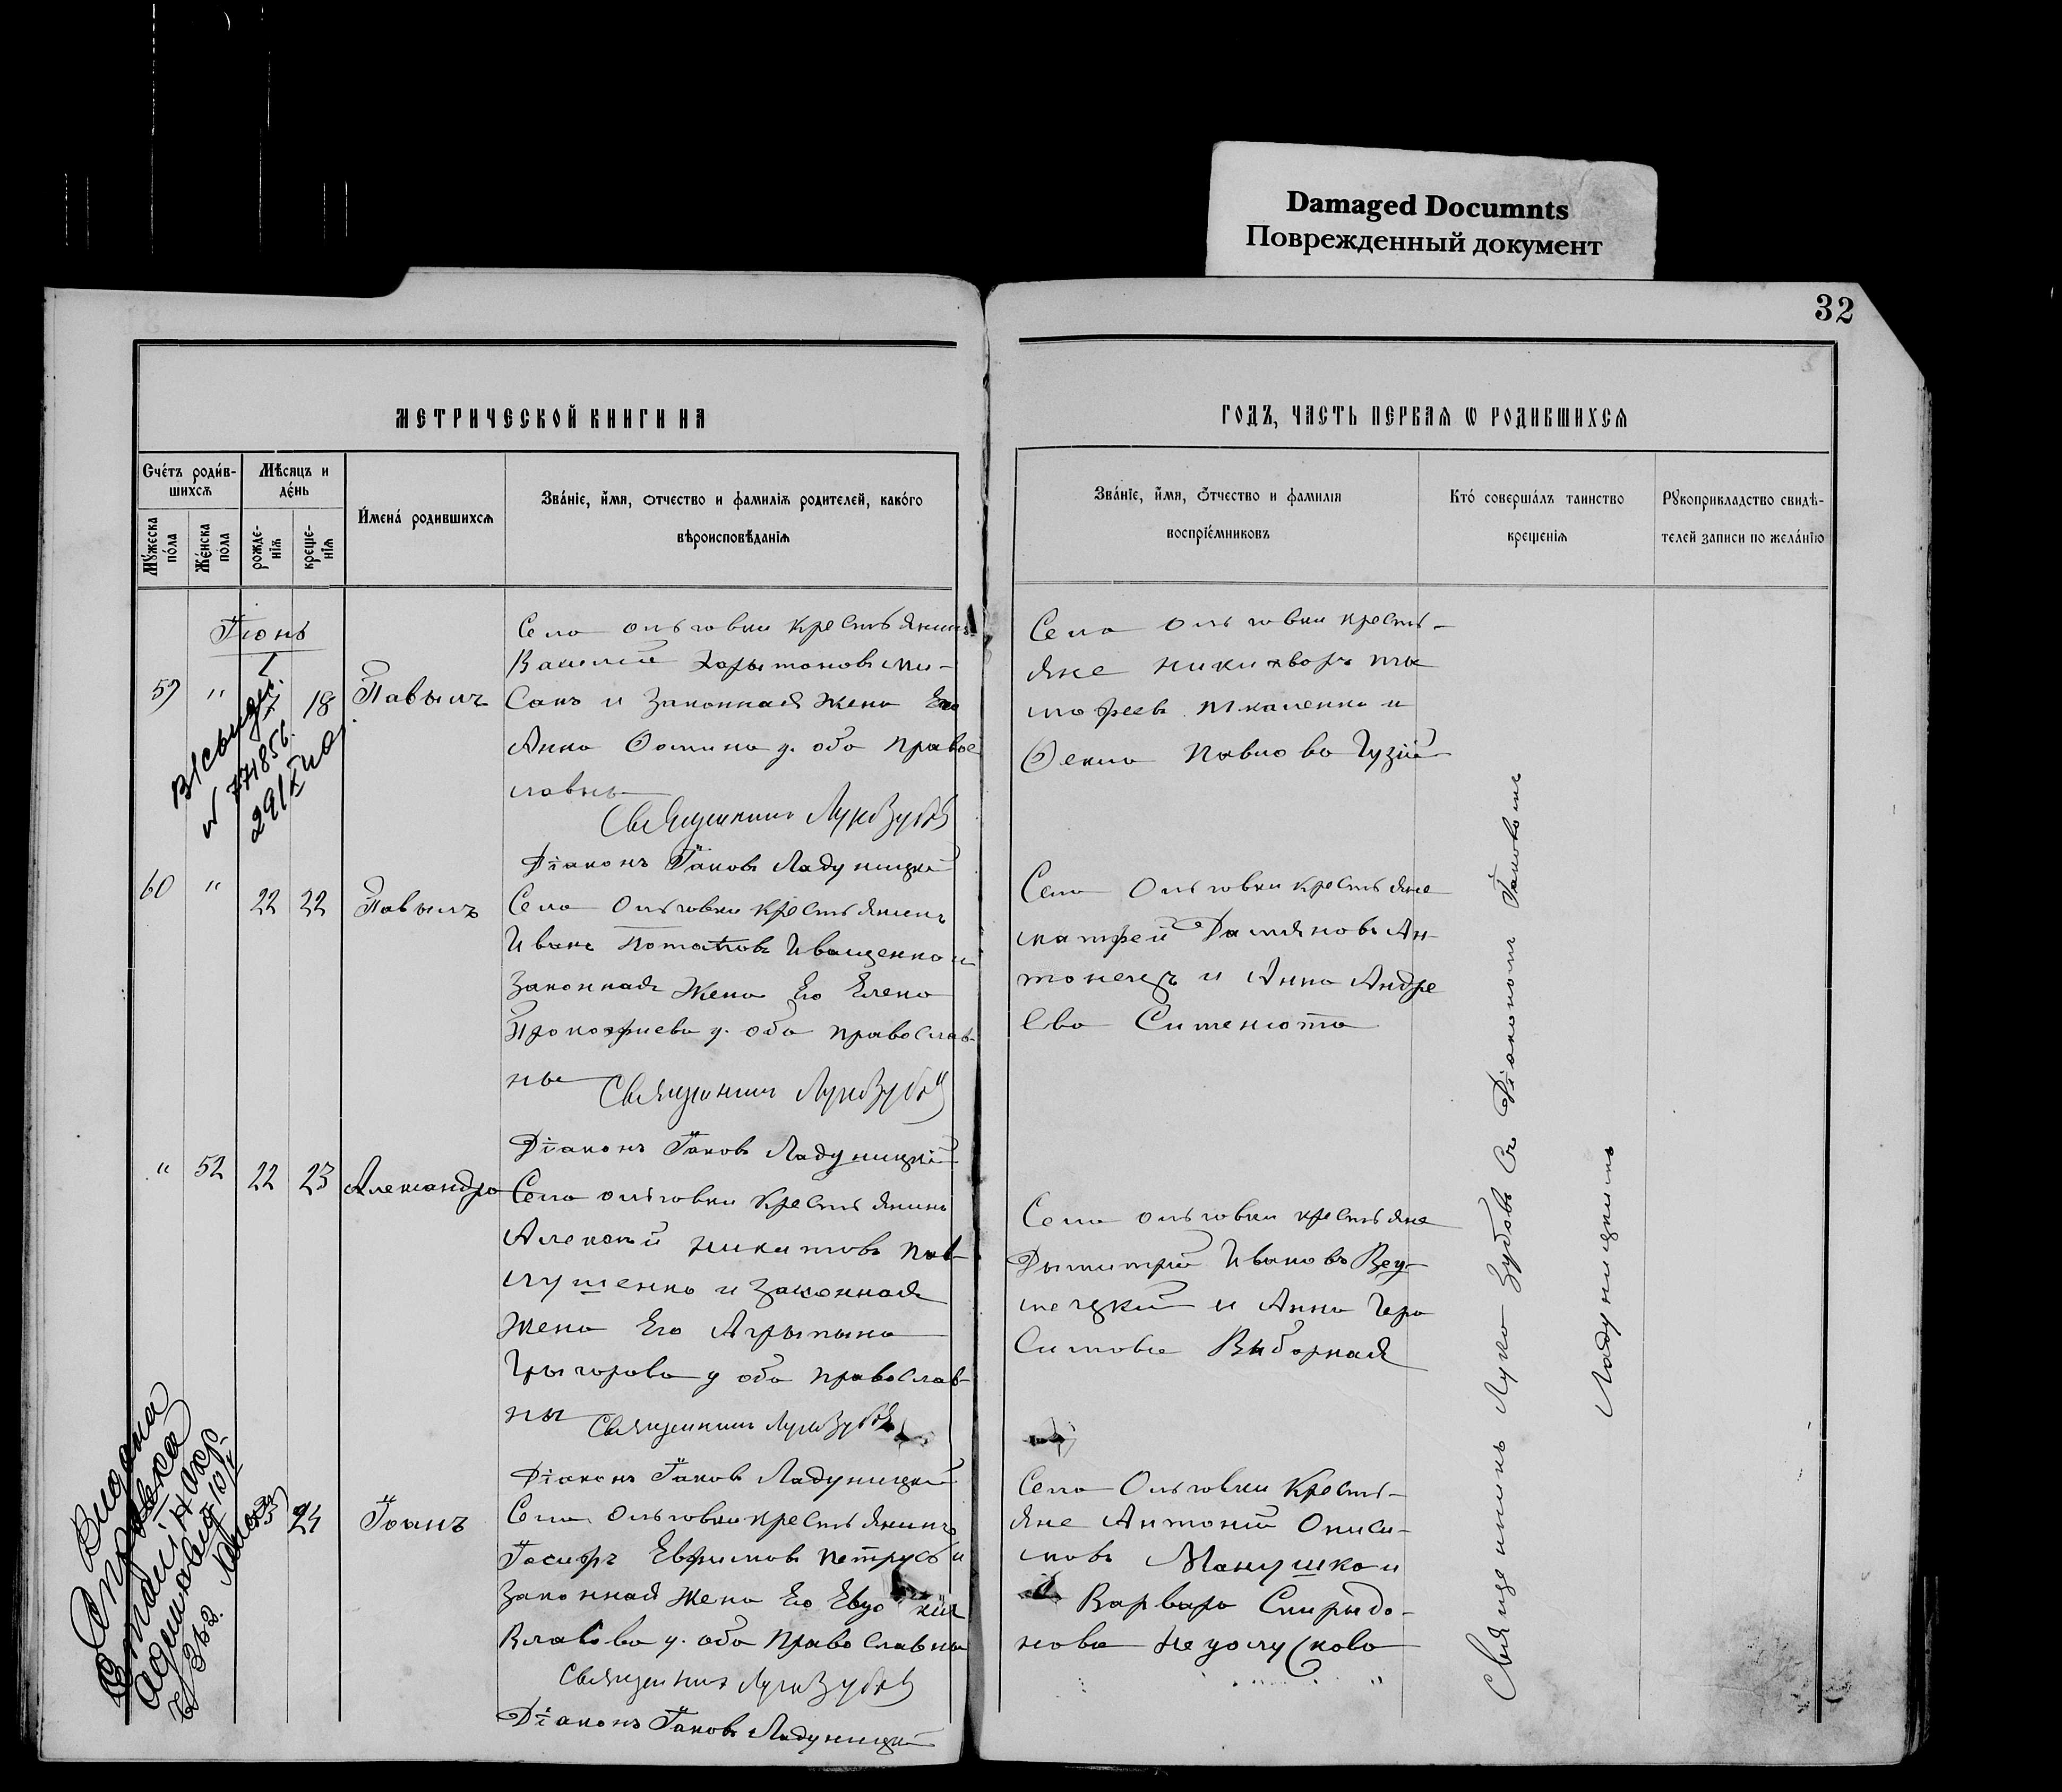 Damaged Documnts
Поврежденный документ
32
МЕТРИЧЕСКОЙ КНИГИ НА
ГОДЪ, ЧАСТЬ ПЕРВАѦ Ѡ РОДИВШИХСѦ
Счетъ родив-
шихсѧ
Мѣсяцъ и
день
Мужеска
пола
Женска
пола
рожде-
нїѧ
креще-
нїѧ
Имена родившихсѧ
Званїе, имя, отчество и фамилїѧ родителей, какого
вѣроисповѣданїѧ
Званїе, имя, ѻтчество и фамилїя
воспрїемниковъ
Кто совершалъ таинство
крещенїѧ
Рукоприкладство свидѣ-
телей записи по желанїю
Іюнь
59 " 18 Павылъ
Села Ольговки крестьянинъ
Василій Харытоновъ Ли-
Санъ и Законная Жена Его
Анна Фомина у. оба Право
славны
Священникъ Лука Зубовъ
Діаконъ Іаковъ Ладуницкій
Села Ольговки кресть-
яне Никифоръ Ти
мофеевъ Ткаленко и
Фекла Павлова Гузій
60 " 22 22 Павылъ
Села Ольговки Крестьянинъ
Иванъ Потаповъ Иващенко и
Законная Жена Его Елена
Прокофиева у. оба Православ-
ны Священникъ Лука Зубовъ
Діаконъ Іаковъ Ладуницкій
Села Ольговки крестьяне
Дамяновъ Ан-
тонецъ и Анна Андре
ева Ситенюта
" 52 22 23 Александра
Села Ольговки Крестьянинъ
Алексѣй Никитовъ Пав-
лушенко и Законная
Жена Его Агрыпына
Грыгорова у оба Православ-
ны Священникъ Лука Зубовъ
Діаконъ Іаковъ Ладуницкій
Села Ольговки крестьяне
Дымитрій Ивановъ
и Анна Гера
Симова Выборная
24 Іоанъ
Села Ольговки крестьянинъ
Іосифъ Ефримовъ Петрусь и
Законная Жена Его Евдокія
Власова у. оба Православны
Священникъ Лука Зубовъ
Діаконъ Іаковъ Ладуницкій
Села Ольговки Кресть-
яне АнтонійОниси-
мовъ Манушко и
Варвара Спирыдо-
нова
Священникъ Лука Зубовъ Съ Діакономъ Іаковомъ
Ладуницкимъ
Видана
Справка